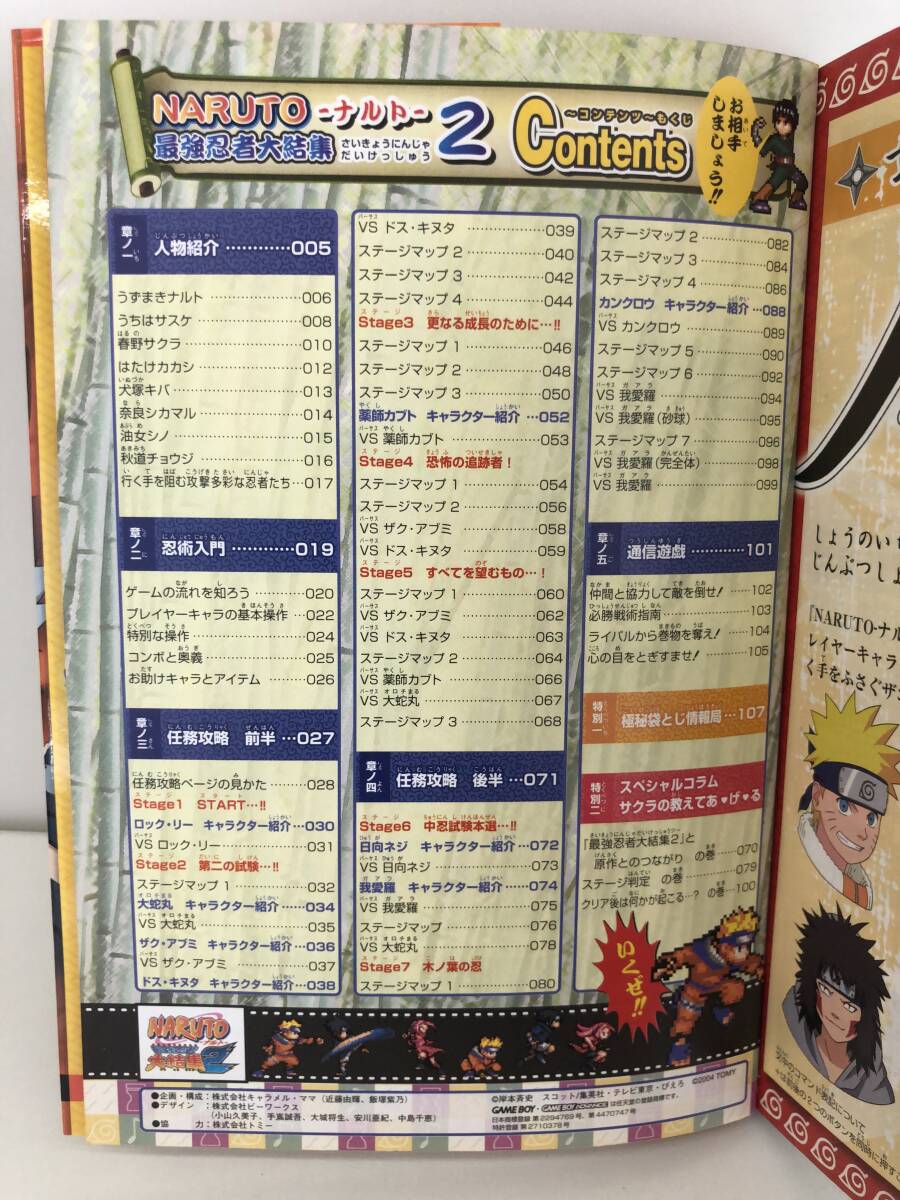 NARUTO -ナルト-
最強忍者大結集
さいきょうにんじゃ
だいけっしゅう
2
～コンテンツ～もくじ
Contents
お相手
しましょう!!
章ノ一
人物紹介 …………005
うずまきナルト …………………006
うちはサスケ …………………008
春野サクラ ……………………010
はたけカカシ …………………012
犬塚キバ ………………………013
奈良シカマル …………………014
油女シノ ………………………015
秋道チョウジ …………………016
行く手を阻む攻撃多彩な忍者たち…017
章ノ二
忍術入門 …………019
ゲームの流れを知ろう ………020
プレイヤーキャラの基本操作 …022
特別な操作 ……………………024
コンボと奥義 …………………025
お助けキャラとアイテム ……026
章ノ三
任務攻略 前半 …027
任務攻略ページの見かた ………028
Stage1 START…!!
ロック・リー キャラクター紹介…030
VS ロック・リー ………………031
Stage2 第二の試験…!!
ステージマップ 1 ……………032
大蛇丸 キャラクター紹介 …034
VS 大蛇丸 ……………………035
ザク・アブミ キャラクター紹介…036
VS ザク・アブミ ……………037
ドス・キヌタ キャラクター紹介…038
VS ドス・キヌタ ……………039
ステージマップ 2 ……………040
ステージマップ 3 ……………042
ステージマップ 4 ……………044
Stage3 更なる成長のために…!!
ステージマップ 1 ……………046
ステージマップ 2 ……………048
ステージマップ 3 ……………050
薬師カブト キャラクター紹介 …052
VS 薬師カブト ………………053
Stage4 恐怖の追跡者！
ステージマップ 1 ……………054
ステージマップ 2 ……………056
VS ザク・アブミ ……………058
VS ドス・キヌタ ……………059
Stage5 すべてを望むもの…！
ステージマップ 1 ……………060
VS ザク・アブミ ……………062
VS ドス・キヌタ ……………063
ステージマップ 2 ……………064
VS 薬師カブト ………………066
VS 大蛇丸 ……………………067
ステージマップ 3 ……………068
章ノ四
任務攻略 後半 …071
Stage6 中忍試験本選…!!
日向ネジ キャラクター紹介…072
VS 日向ネジ …………………073
我愛羅 キャラクター紹介 …074
VS 我愛羅 ……………………075
ステージマップ ………………076
VS 大蛇丸 ……………………078
Stage7 木ノ葉の忍
ステージマップ 1 ……………080
ステージマップ 2 ……………082
ステージマップ 3 ……………084
ステージマップ 4 ……………086
カンクロウ キャラクター紹介 …088
VS カンクロウ ………………089
ステージマップ 5 ……………090
ステージマップ 6 ……………092
VS 我愛羅 ……………………094
VS 我愛羅(砂球) ……………095
ステージマップ 7 ……………096
VS 我愛羅(完全体) …………098
VS 我愛羅 ……………………099
章ノ五
通信遊戯 …………101
仲間と協力して敵を倒せ! ……102
必勝戦術指南 …………………103
ライバルから巻物を奪え! ……104
心の目をとぎすませ! …………105
特別一
極秘袋とじ情報局 …107
特別二
スペシャルコラム
サクラの教えてあ♥げ♥る
「最強忍者大結集2」と
原作とのつながり の巻 ……070
ステージ判定 の巻 ……079
クリア後は何かが起こる…? の巻…100
いくぜ!!
NARUTO
ナルト
大結集2
●企画・構成：株式会社キャラメル・ママ（近藤由輝、飯塚紫乃）
●デザイン：株式会社ビーワークス
（小山久美子、手嶌誠吾、大城将生、安川亜紀、中島千恵）
●協 力：株式会社トミー
©岸本斉史 スコット/集英社・テレビ東京・ぴえろ ©2004 TOMY
GAME BOY・GAME BOY ADVANCEは任天堂の登録商標です。
日本商標登録 第2294769号、第4470747号
特許登録 第2710378号
しょうのい
じんぶつし
『NARUTO-ナル
レイヤーキャラ
く手をふさぐザ